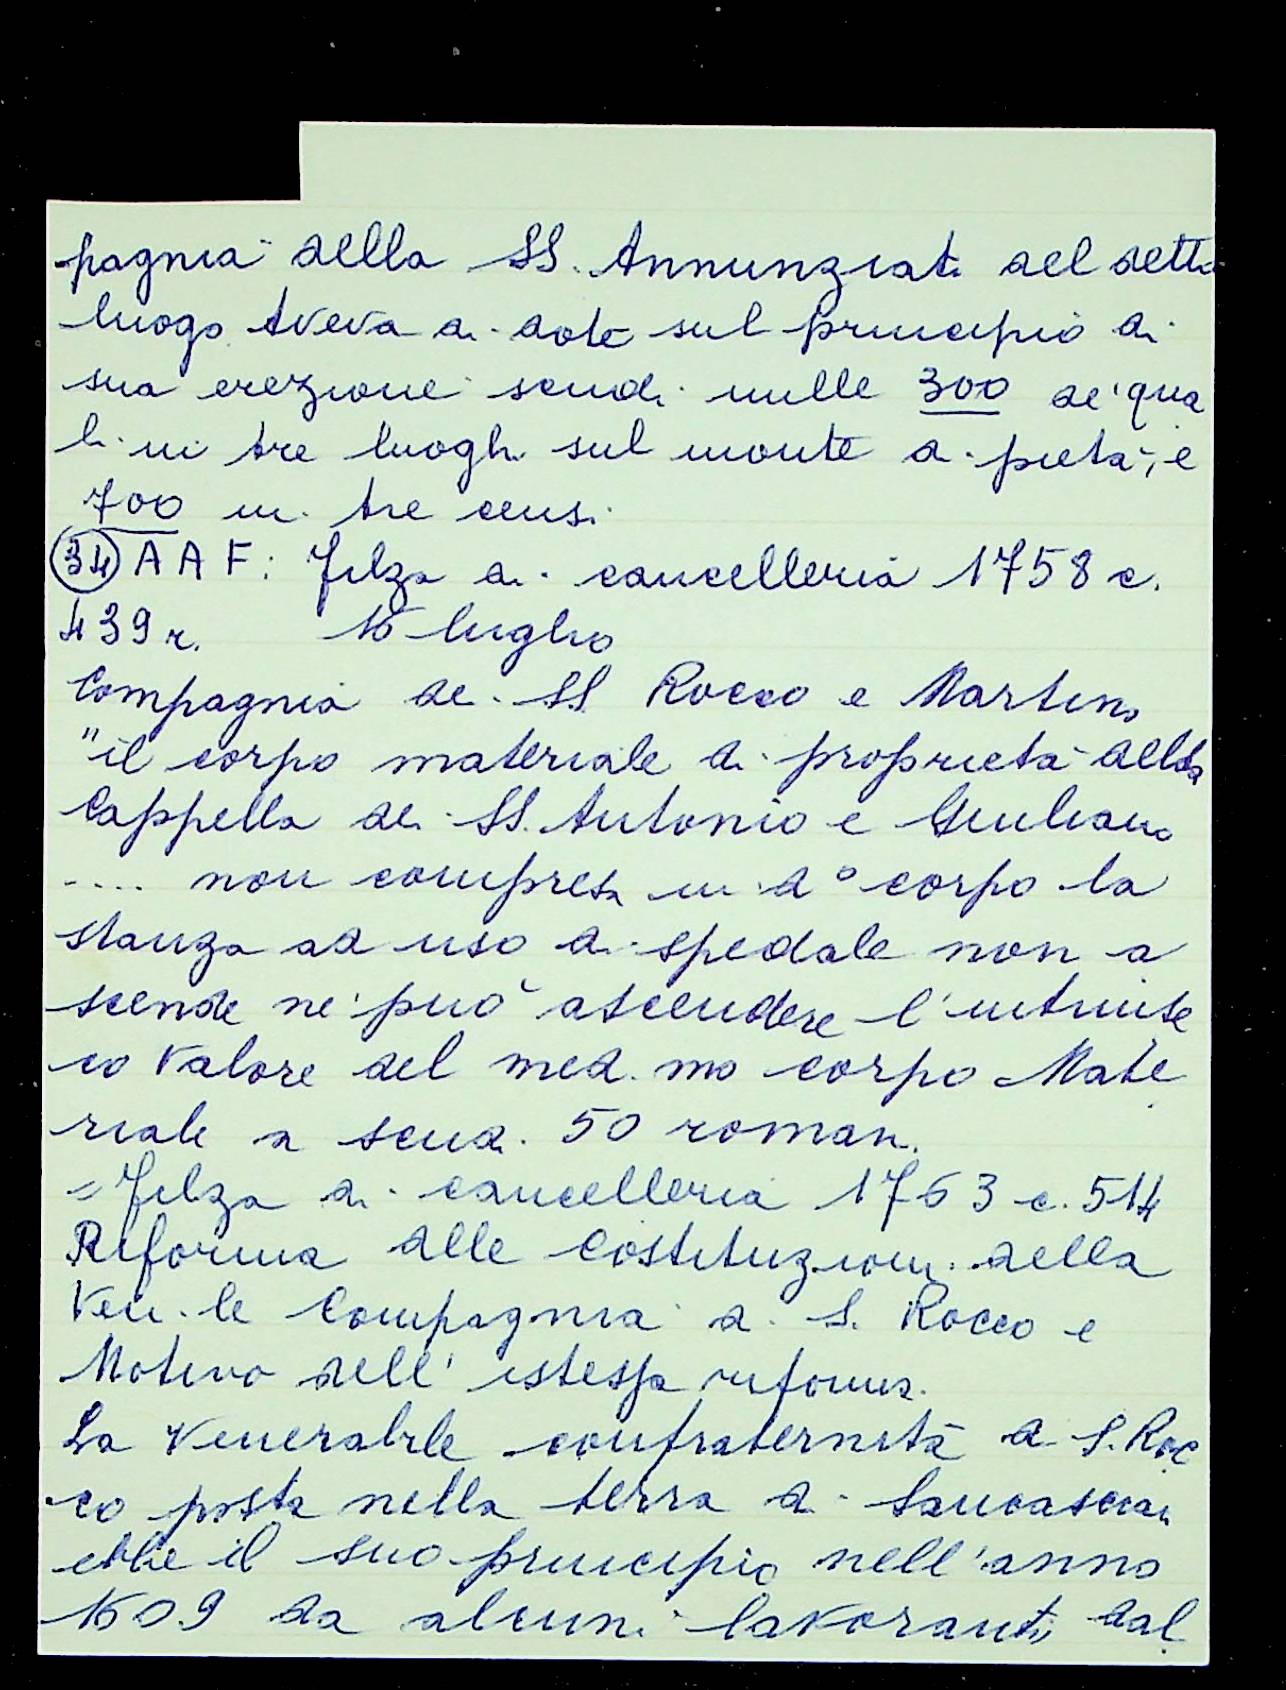 pagnia della SS. Annunziata del detto
luogo aveva di dote sul principio di
sua erezione scudi mille 300 de' qua
li in tre luoghi sul monte di pietà, e
700 in tre censi
34 A A F: Filza di cancelleria 1758 c.
439 r. 16 luglio
Compagnia de SS Rocco e Martino
"il corpo materiale di proprietà della
Cappella dei SS. Antonio e Giuliano
.... non compresa in d° corpo la
stanza ad uso di spedale non a
scende ne può ascendere l'intrinse
co valore del med. mo corpo Mate
riale a scudi 50 romani.
= Filza di cancelleria 1763 c. 514
Riforma delle Costituzioni della
Ven. le Compagnia di S. Rocco e
Motivo dell' istessa riforma.
La Venerabile confraternità di S. Roc
co posta nella terra di Sancascian
ebbe il suo principio nell'anno
1609 da alcuni lavoranti, dal